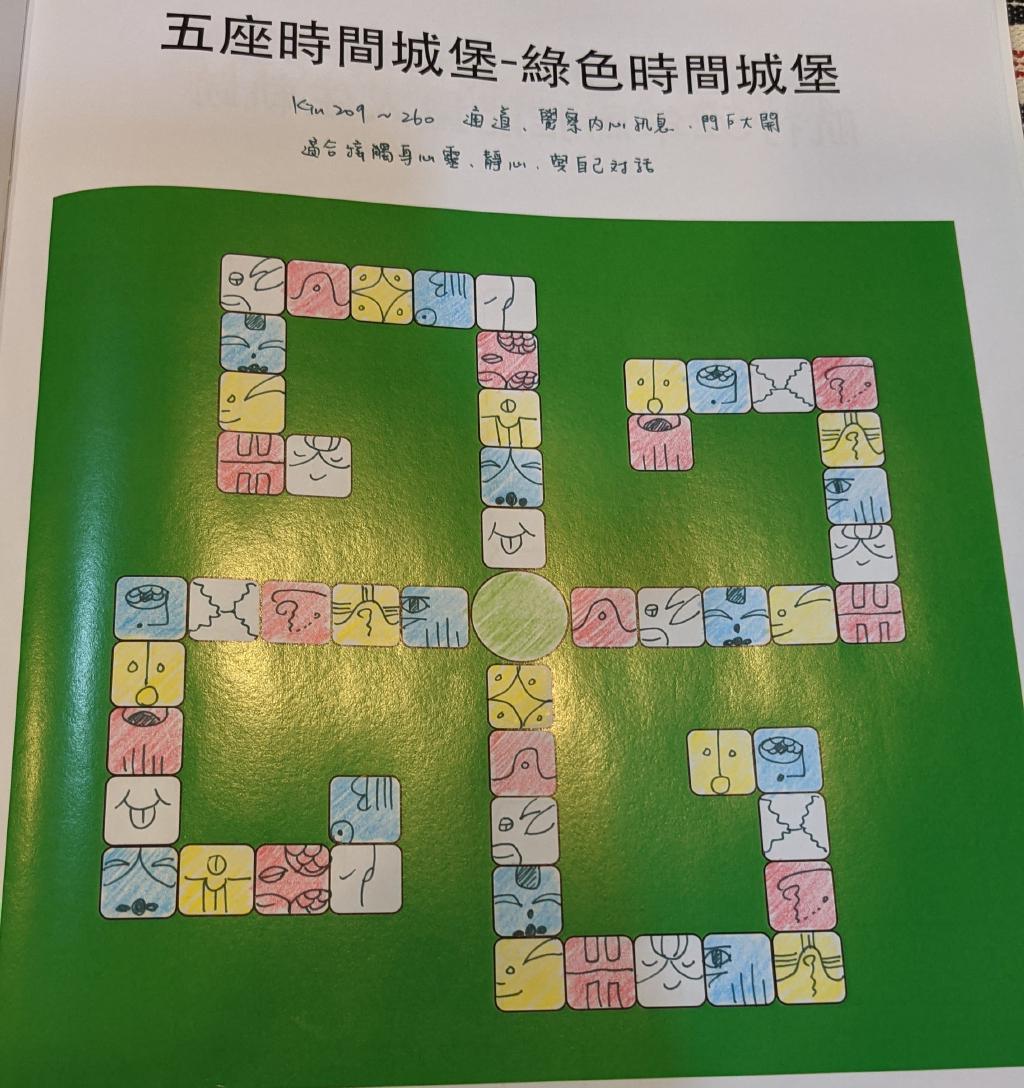 五座時間城堡-綠色時間城堡
Kin 209 ~ 260 通道、覺察內心訊息、門戶大開
適合接觸身心靈、靜心、與自己对話